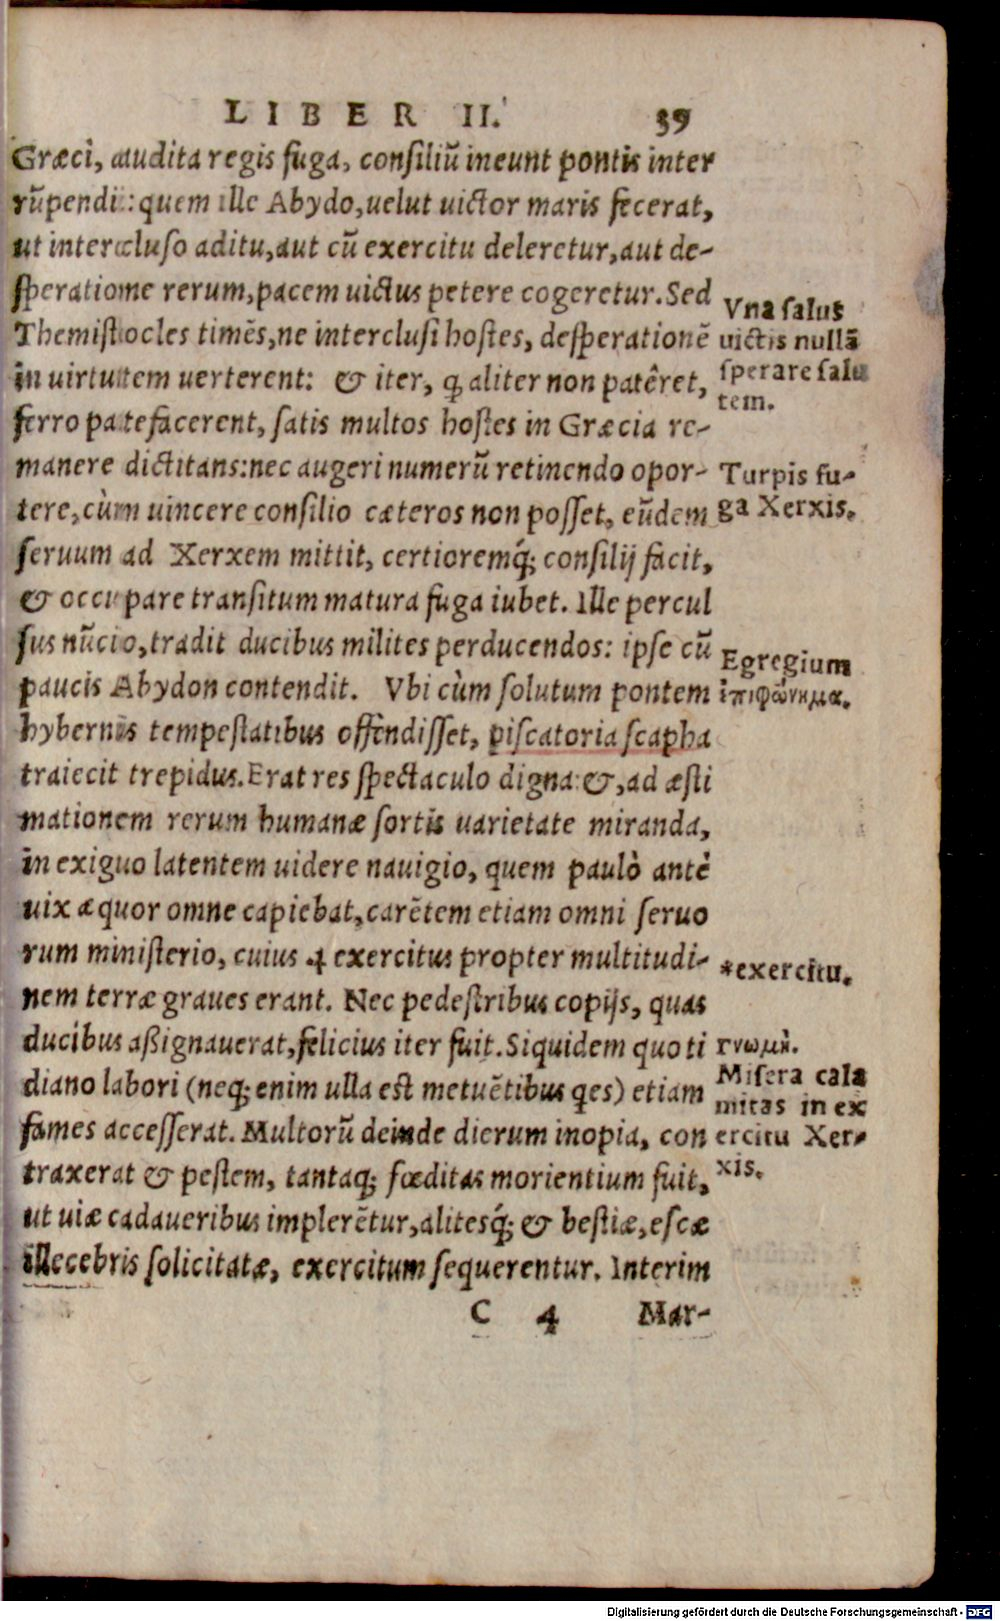 LIBER II. 39
Græci, audita regis fuga, consiliũ ineunt pontis inter
rũpendi: quem ille Abydo, uelut uictor maris fecerat,
ut intercluso aditu, aut cũ exercitu deleretur, aut de-
speratione rerum, pacem uictus petere cogeretur. Sed
Themistocles timẽs, ne interclusi hostes, desperationẽ
in uirtutem uerterent: & iter, ꝗ aliter non patêret,
ferro patefacerent, satis multos hostes in Græcia re-
manere dictitans: nec augeri numerũ retinendo opor-
tere, cùm uincere consilio cæteros non posset, eũdem
seruum ad Xerxem mittit, certioremq́; consilij facit,
& occupare transitum matura fuga iubet. Ille percul
sus nũcio, tradit ducibus milites perducendos: ipse cũ
paucis Abydon contendit. Vbi cùm solutum pontem
hybernis tempestatibus offendisset, piscatoria scapha
traiecit trepidus. Erat res spectaculo digna: &, ad æsti
mationem rerum humanæ sortis uarietate miranda,
in exiguo latentem uidere nauigio, quem paulò antè
uix æquor omne capiebat, carẽtem etiam omni seruo
rum ministerio, cuius * exercitus propter multitudi-
nem terræ graues erant. Nec pedestribus copijs, quas
ducibus aßignauerat, felicius iter fuit. Siquidem quoti
diano labori (neq; enim ulla est metuẽtibus ꝗes) etiam
fames accesserat. Multorũ deinde dierum inopia, con
traxerat & pestem, tantaq; fœditas morientium fuit,
ut uiæ cadaueribus implerẽtur, alitesq́; & bestiæ, escæ
illecebris solicitatæ, exercitum sequerentur. Interim
C 4 Mar-
Vna salus
uictis nullã
sperare salu
tem.
Turpis fu-
ga Xerxis.
Egregium
ἐπιφώνημα.
*exercitu.
Γνωμὴ.
Misera cala
mitas in ex
ercitu Xer-
xis.
Digitalisierung gefördert durch die Deutsche Forschungsgemeinschaft - DFG